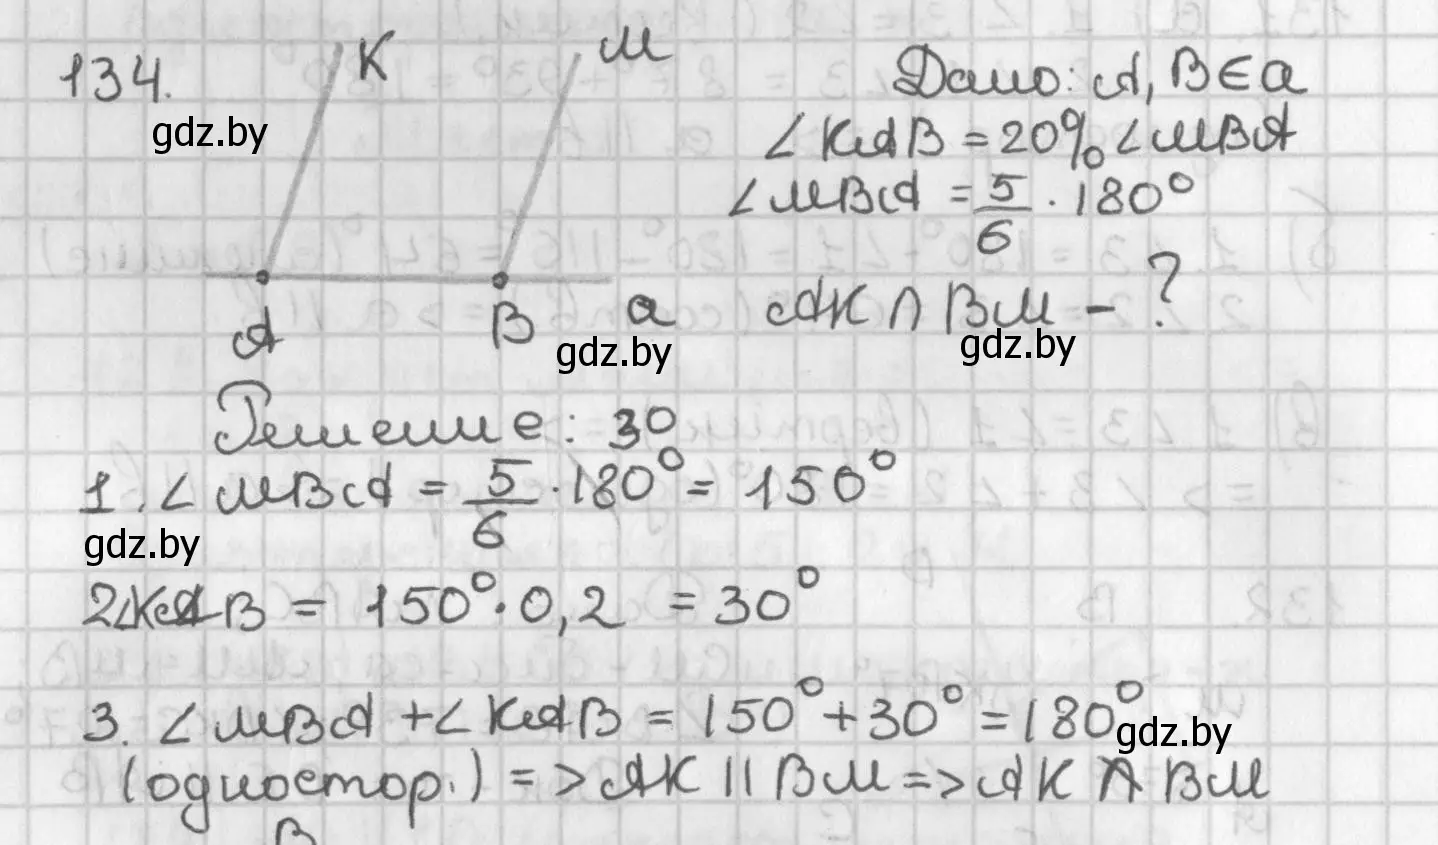 134.
K
M
gdz.by
A
B
a
gdz.by
Дано: A, B∈a
∠KAB = 20% ∠MBA
∠MBA = 5/6 · 180°
AK ∩ BM - ?
gdz.by
Решение: 30
1. ∠MBA = 5/6 · 180° = 150°
gdz.by
2∠KAB = 150° · 0,2 = 30°
3. ∠MBA + ∠KAB = 150° + 30° = 180°
gdz.by
(одностор.) => AK || BM => AK ∩ BM
B